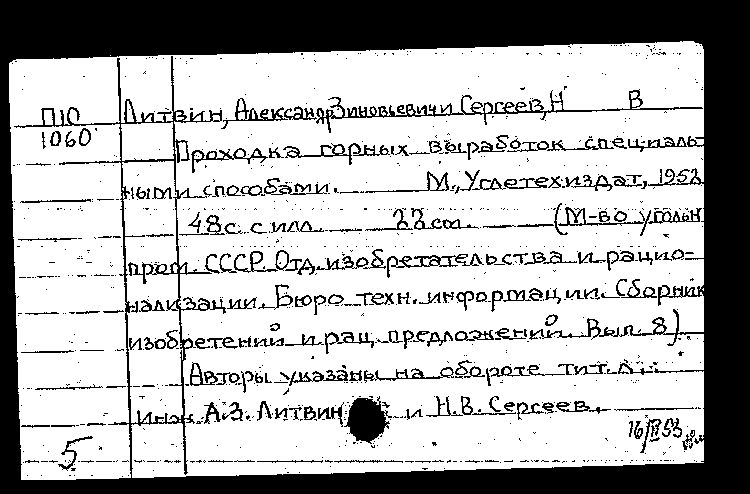 П10 Литвин, Александр Зиновьевич и Сергеев, Н В
1060
Проходка горных выработок специаль-
ными способами. М., Углетехиздат, 1952
48 с. с илл. 22 см. (М-во угольн
пром. СССР. Отд. изобретательства и рацио=
нализации. Бюро техн. информации. Сборник
изобретений и рац. предложений. Вып. 8).
Авторы указаны на обороте тит. л.:
инж А.З. Литвин и Н.В. Сергеев.
5 16/III 53